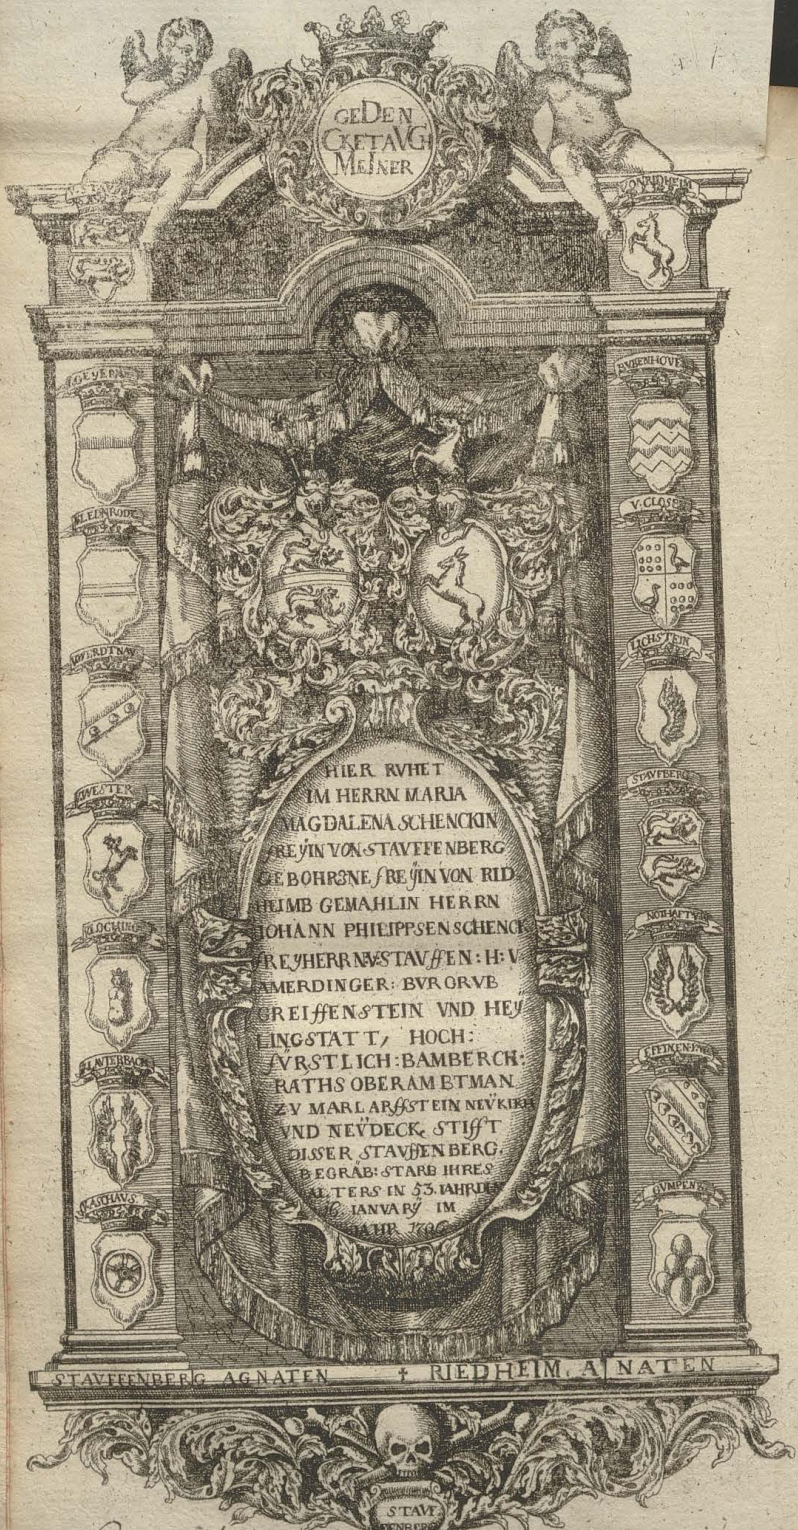 GEDEN
CKETAVCH
MEINER
V·ONRIDHEIM
BVBENHOVE
V·CLOSE
LICHSTEIN
STAVFBERG
NOTHAFT
GVMPEN
WESTER
LAVTERBACH
RASCHAVS
HIER RVHET
IM HERRN MARIA
MAGDALENA SCHENCKIN
FREŸIN VON STAVFFENBERG
GEBOHRENE FREŸIN VON RID
HEIMB GEMAHLIN HERRN
IOHANN PHILIPPSEN SCHENCK
FREŸHERRN V·STAVFFEN: H: V
AMERDINGER: BVRORVB
GREIFFENSTEIN VND HEŸ
LINGSTATT, HOCH:
FÜRSTLICH: BAMBERCH:
RATHS OBERAMBTMAN
ZV MARLARFFSTEIN NEVKIRH
VND NEŸDECK, STIFFT
DISSER STAVFFENBERG.
BEGRÄB: STARB IHRES
ALTERS IN 53. IAHR DEN
16 IANVARŸ IM
JAHR 1706
STAVFFENBERG AGNATEN † RIEDHEIM. AGNATEN
STAVF
FENBERG